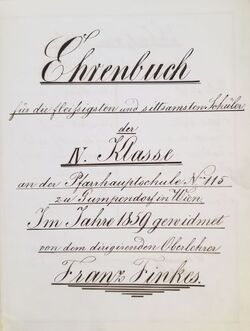 Ehrenbuch
für die fleißigsten und sittsamsten Schüler
der
IV. Klasse
an der Pfarrhauptschule No 115
zu Gumpendorf in Wien.
Im Jahre 1859 gewidmet
von dem dirigirenden Oberlehrer
Franz Finkes.